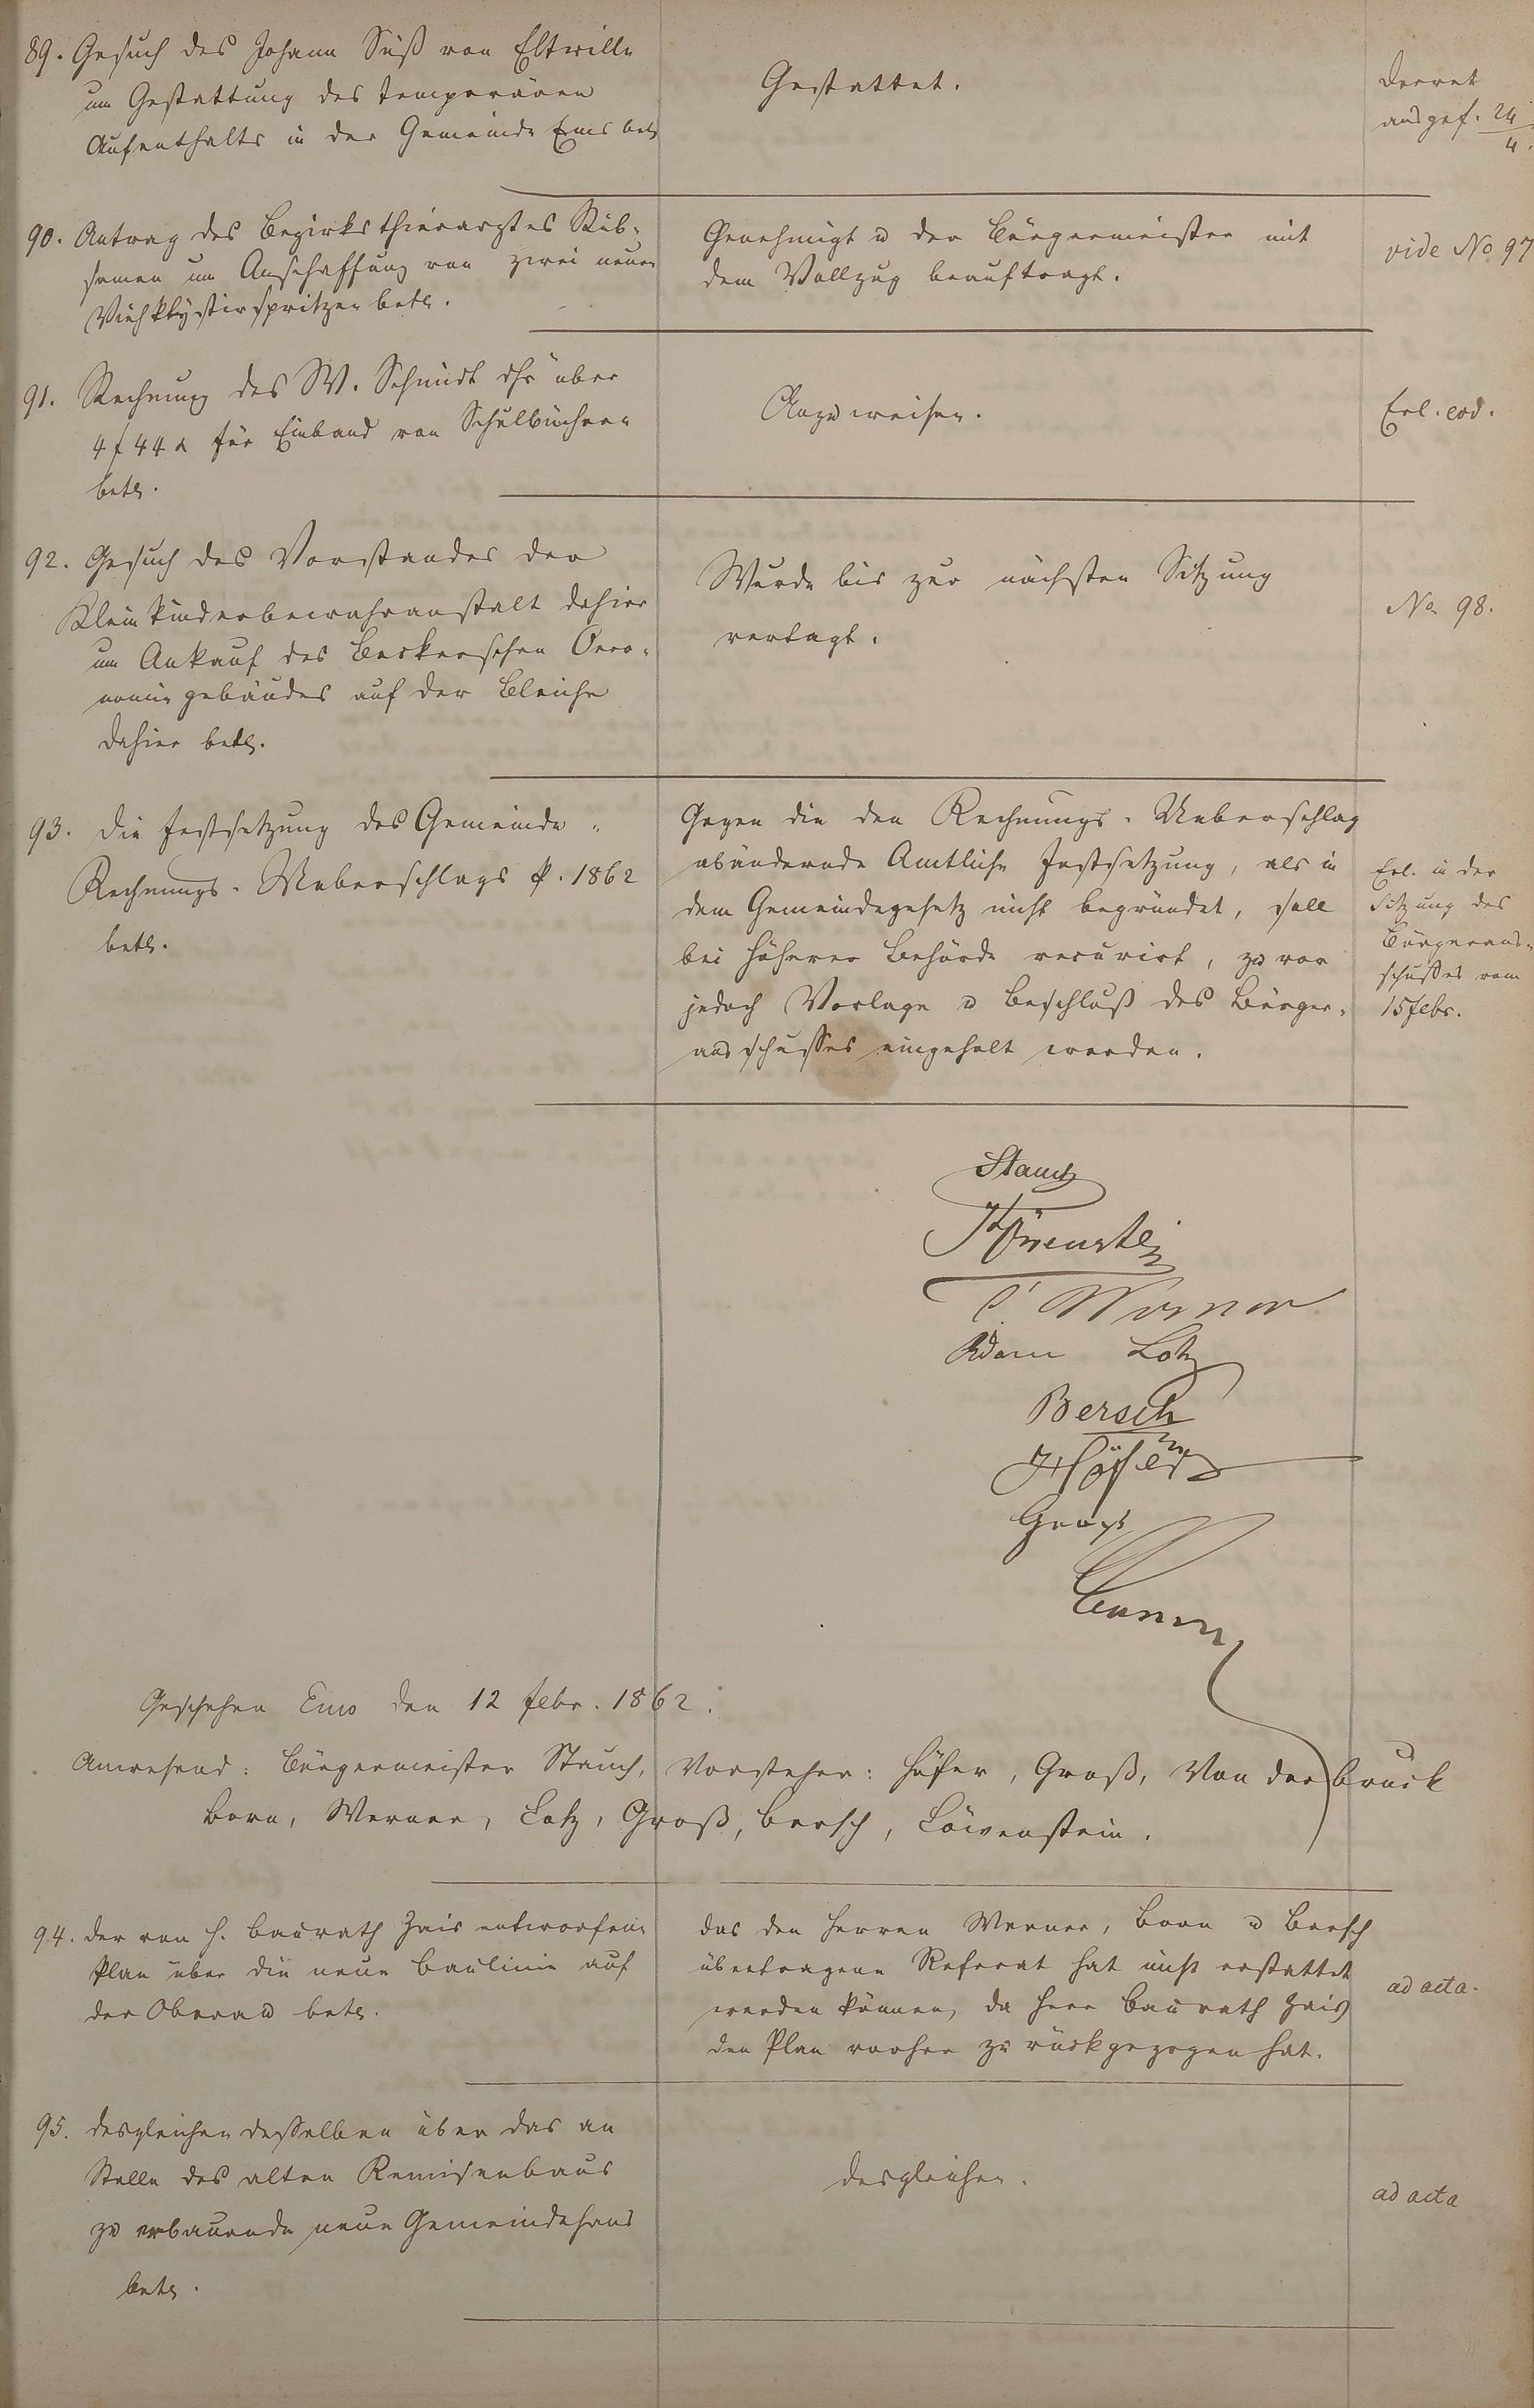 89. Gesuch des Johann Süß von Eltville
um Gestattung des temporären
Aufenthalts in der Gemeinde Ems betr
Gestattet.
Decret
ausgef. 24/4.
90. Antrag des Bezirksthierarztes
samen um Anschaffung von zwei neuen
Viehklystirspritzen betr.
Genehmigt u der Bürgermeister mit
dem Vollzug beauftragt.
vide No 97
91. Rechnung des W. Schmidt dhr über
4 f 44 x für Einband von Schulbüchern
betr.
Anzuweisen.
Erl. eod.
92. Gesuch des Vorstandes der
Kleinkinderbewahranstalt dahier
um Ankauf des Beckerschen Oeco-
nomiegebäudes auf der Bleiche
dahier betr.
Wurde bis zur nächsten Sitzung
vertagt.
No 98.
93. Die Festsetzung des Gemeinde-
Rechnungs-Ueberschlags p. 1862
betr.
Gegen die den Rechnungs-Ueberschlag
abändernde Amtliche Festsetzung, als in
dem Gemeindegesetz nicht begründet, soll
bei höherer Behörde recurirt, zuvor
jedoch Vorlage u Beschluß des Bürger-
ausschusses eingeholt werden.
Erl. in der
Sitzung des
Bürgeraus-
schusses vom
15 Febr.
Löwenstein
Werner
Adam Lotz
Bersch
Höfer
Groß
Geschehen Ems den 12 Febr. 1862.
Anwesend: Bürgermeister Stauch, Vorsteher: Höfer, Groß, Von der Bruck
Born, Werner, Lotz, Groß, Bersch, Löwenstein.
94. Der von H. Baurath Zais entworfene
Plan über die neue Baulinie auf
der Oberau betr.
Das den Herren Werner, Born u Bersch
übertragene Referat hat nicht erstattet
werden können, da Herr Baurath Zais
den Plan vorher zurückgezogen hat.
ad acta.
95. Desgleichen desselben über das an
Stelle des alten Remisenbaus
zu erbauende neue Gemeindehaus
betr.
Desgleichen.
ad acta